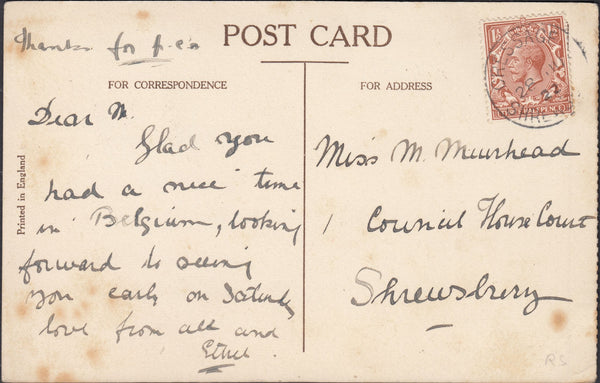 Thanks for p.cs
POST CARD
FOR CORRESPONDENCE
FOR ADDRESS
Dear M.
Glad you
had a nice time
in Belgium, looking
forward to seeing
you early on Saturday
love from all and
Ethel
Printed in England
Miss M. Muirhead
1 Council House Court
Shrewsbury
RS